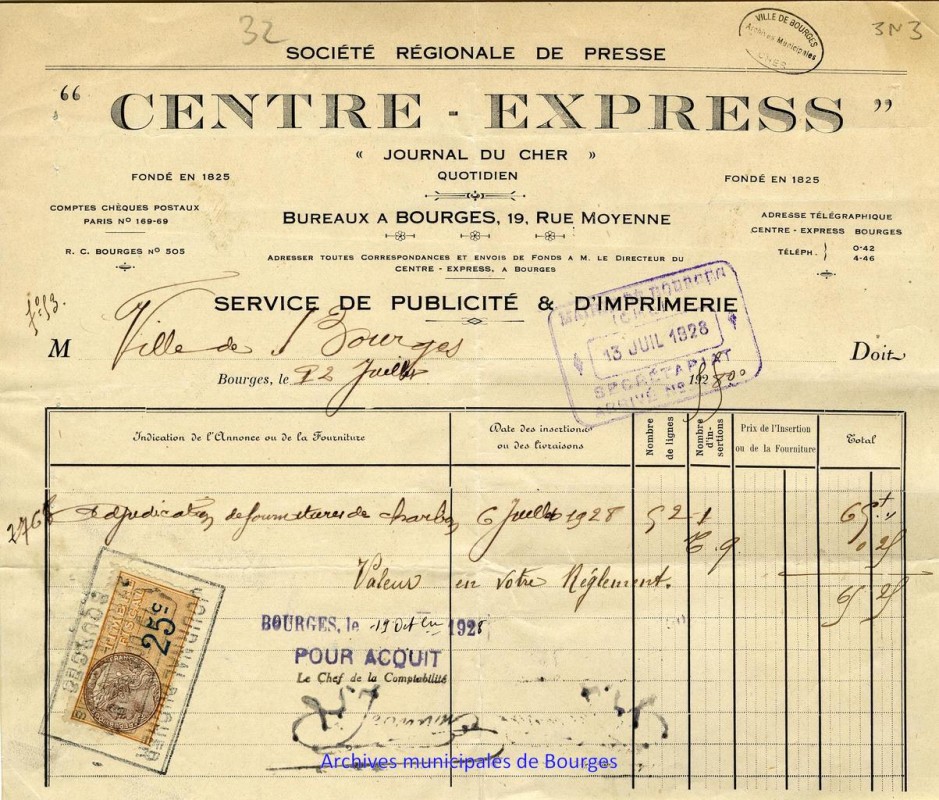 32
3N3
VILLE DE BOURGES
Archives Municipales
CHER
SOCIÉTÉ RÉGIONALE DE PRESSE
“ CENTRE - EXPRESS ”
« JOURNAL DU CHER »
QUOTIDIEN
FONDÉ EN 1825
FONDÉ EN 1825
COMPTES CHÈQUES POSTAUX
PARIS No 169-69
R. C. BOURGES No 505
BUREAUX A BOURGES, 19, RUE MOYENNE
ADRESSE TÉLÉGRAPHIQUE
CENTRE - EXPRESS BOURGES
TÉLÉPH. 0-42
4-46
ADRESSER TOUTES CORRESPONDANCES ET ENVOIS DE FONDS A M. LE DIRECTEUR DU
CENTRE - EXPRESS, A BOURGES
SERVICE DE PUBLICITÉ & D'IMPRIMERIE
MAIRIE DE BOURGES
13 JUIL 1928
SECRÉTARIAT
ARRIVÉ No
M Ville de Bourges Doit
Bourges, le 12 Juillet 192
Indication de l'Annonce ou de la Fourniture
Date des insertions
ou des livraisons
Nombre
de lignes
Nombre
d'in-
sertions
Prix de l'Insertion
ou de la Fourniture
Total
Adjudication de fournitures de charbon 6 Juillet 1928 52 1 65
0 25
Valeur en votre Réglement.
65 25
BOURGES, le 19 1928
POUR ACQUIT
Le Chef de la Comptabilité
25c
Archives municipales de Bourges